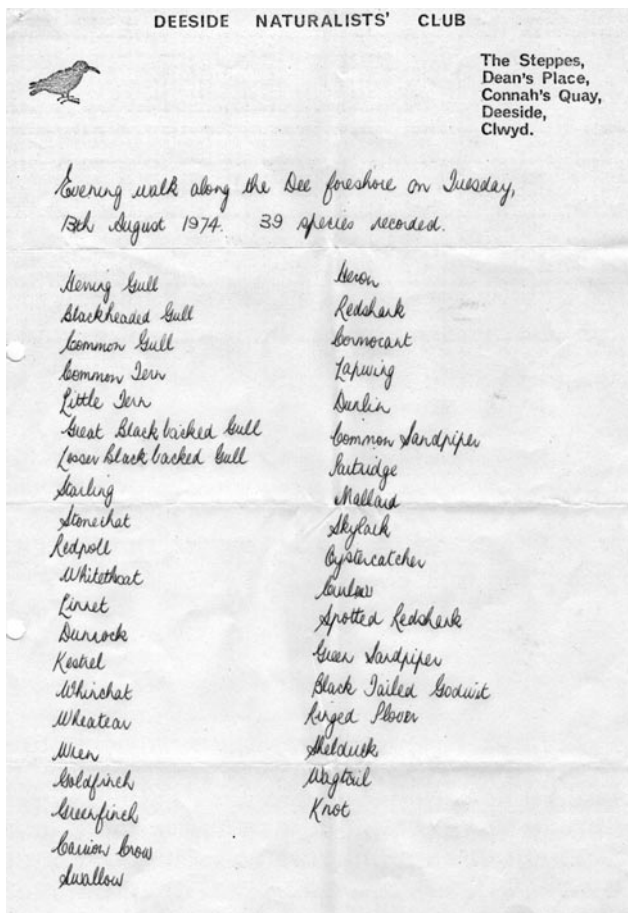 DEESIDE NATURALISTS' CLUB
The Steppes,
Dean's Place,
Connah's Quay,
Deeside,
Clwyd.
Evening walk along the Dee foreshore on Tuesday,
13th August 1974. 39 species recorded.
Herring Gull
Blackheaded Gull
Common Gull
Common Tern
Little Tern
Great Black backed Gull
Lesser Black backed Gull
Starling
Stonechat
Redpoll
Whitethoat
Linnet
Dunnock
Kestrel
Whinchat
Wheatear
Wren
Goldfinch
Greenfinch
Carrion Crow
Swallow
Heron
Redshank
Cormorant
Lapwing
Dunlin
Common Sandpiper
Partridge
Mallard
Skylark
Oystercatcher
Curlew
Spotted Redshank
Green Sandpiper
Black Tailed Godwit
Ringed Plover
Shelduck
Wagtail
Knot